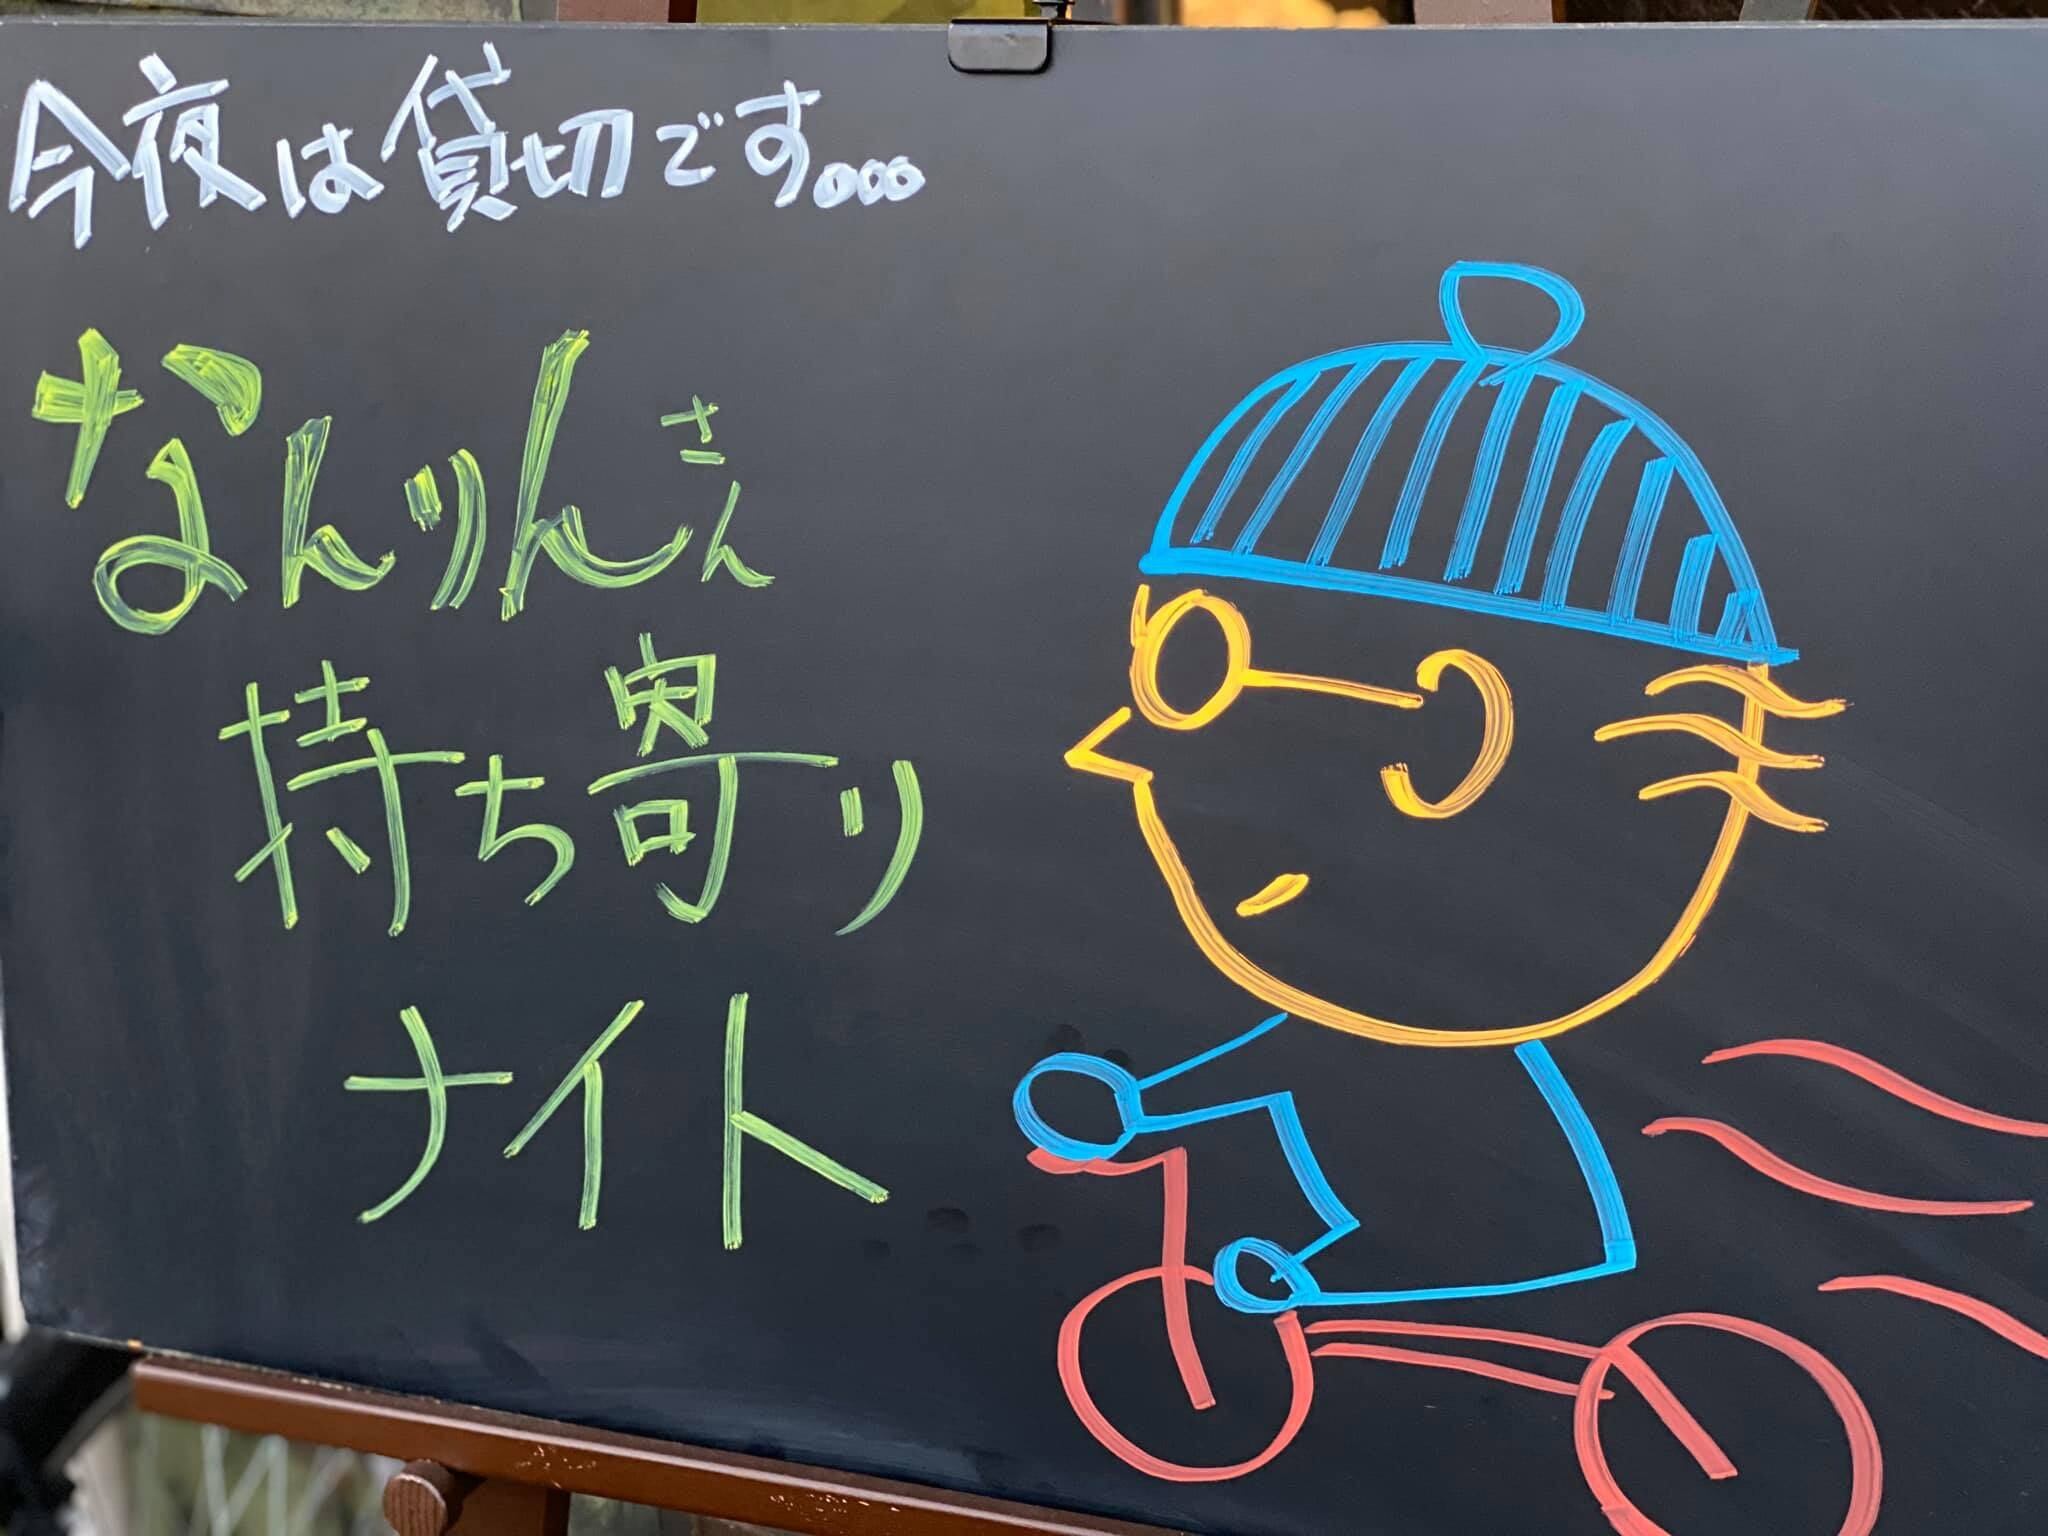 今夜は貸切です。。。
なんりんさん
持ち寄り
ナイト